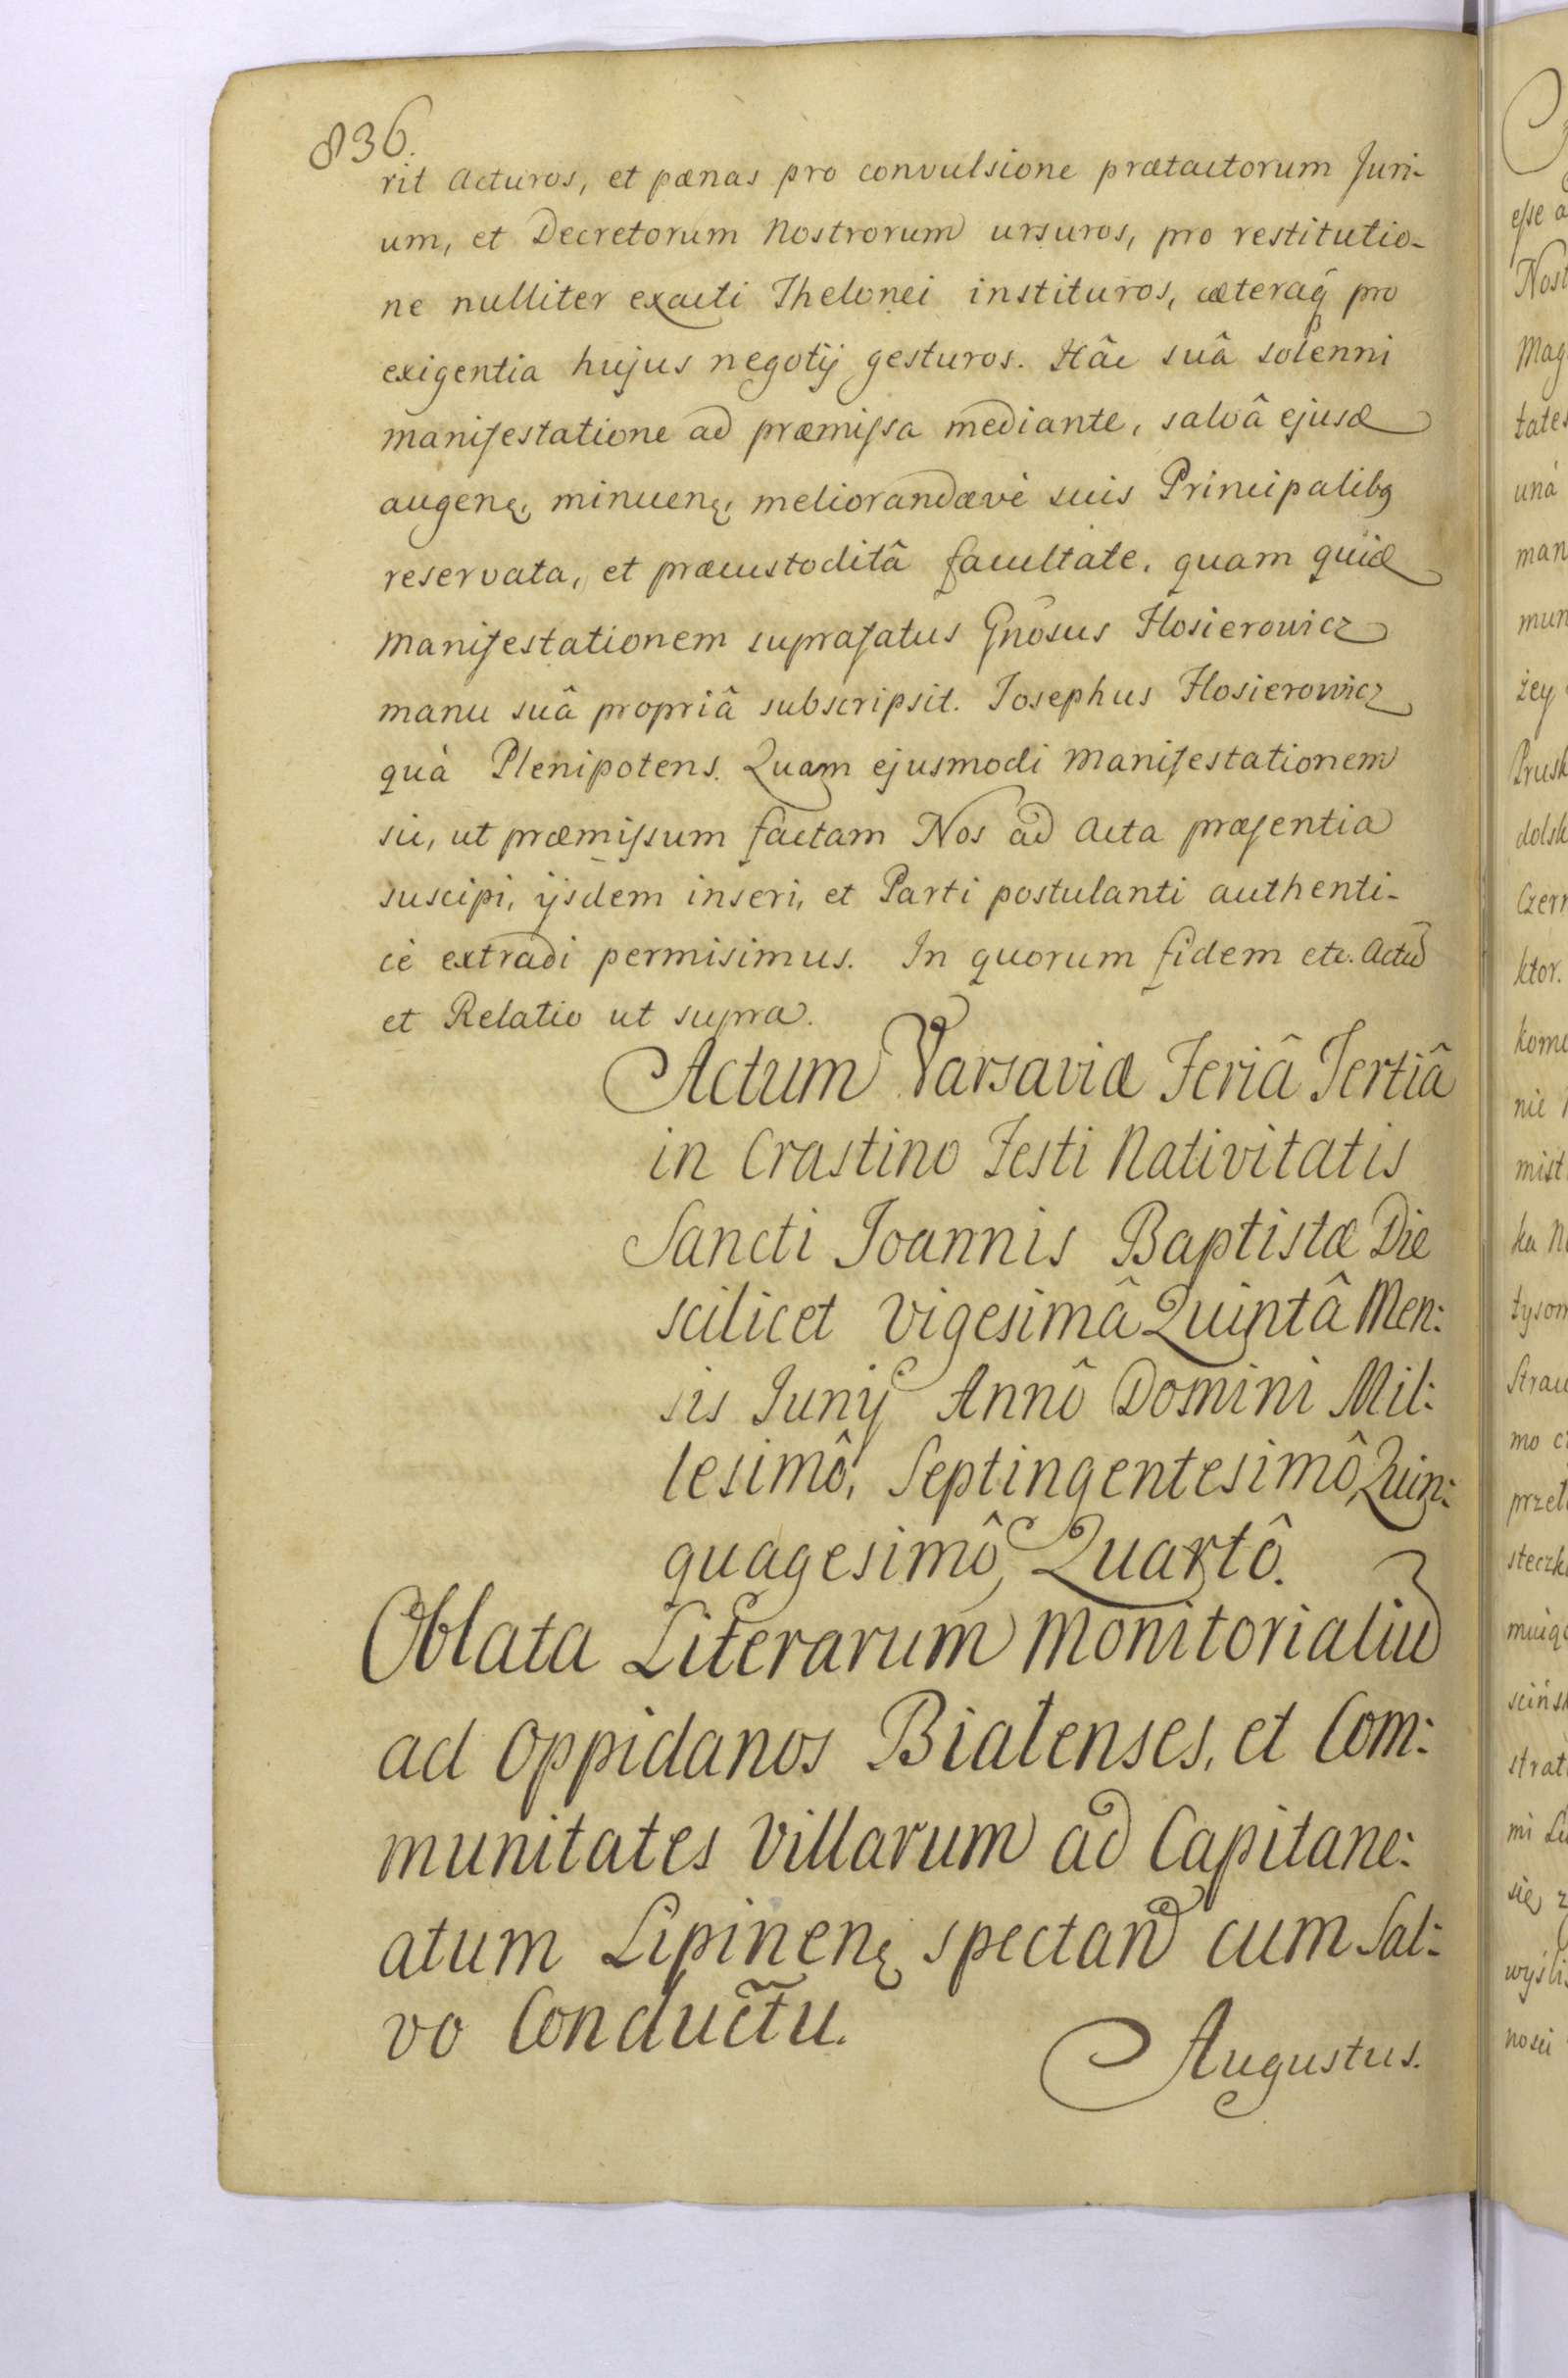 836.
rit Acturos, et pænas pro convulsione prætactorum Juri-
um, et Decretorum Nostrorum ursuros, pro restitutio-
ne nulliter exacti Thelonei instituros, cæteraq̃ pro
exigentia hujus negotij gesturos. Hâc suâ solenni
manifestatione ad præmissa mediante, salvâ ejusd
augenę, minuenę, meliorandævè suis Principalibg
reservata, et præcustoditâ facultate, quam quid
Manifestationem suprafatus Gnõsus Hosierowicz
manu suâ propriâ subscripsit. Josephus Hosierowicz
quà Plenipotens. Quam ejusmodi Manifestationem
sic, ut præmissum factam Nos ad Acta præsentia
suscipi, ijsdem inseri, et Parti postulanti authenti-
cè extradi permisimus. In quorum fidem etc. Actũ
et Relatio ut supra.
Actum Varsaviæ Feriâ Tertiâ
in Crastino Festi Nativitatis
Sancti Joannis Baptistæ Die
scilicet Vigesimâ Quintâ Men:
sis Junij Annô Domini Mil:
lesimô, Septingentesimô Quin:
quagesimô, Quartô.
Oblata Literarum Monitorialiũ
ad Oppidanos Bialenses, et Com:
munitates Villarum ad Capitane:
atum Lipinenę spectand cum Sal:
vo Conductu.
Augustus.